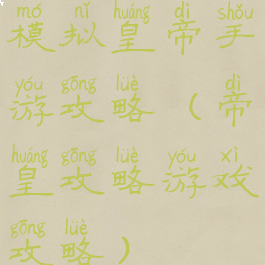 mó nǐ huáng dì shǒu
模拟皇帝手
yóu gōng lüè dì
游攻略(帝
huáng gōng lüè yóu xì
皇攻略游戏
gōng lüè
攻略)